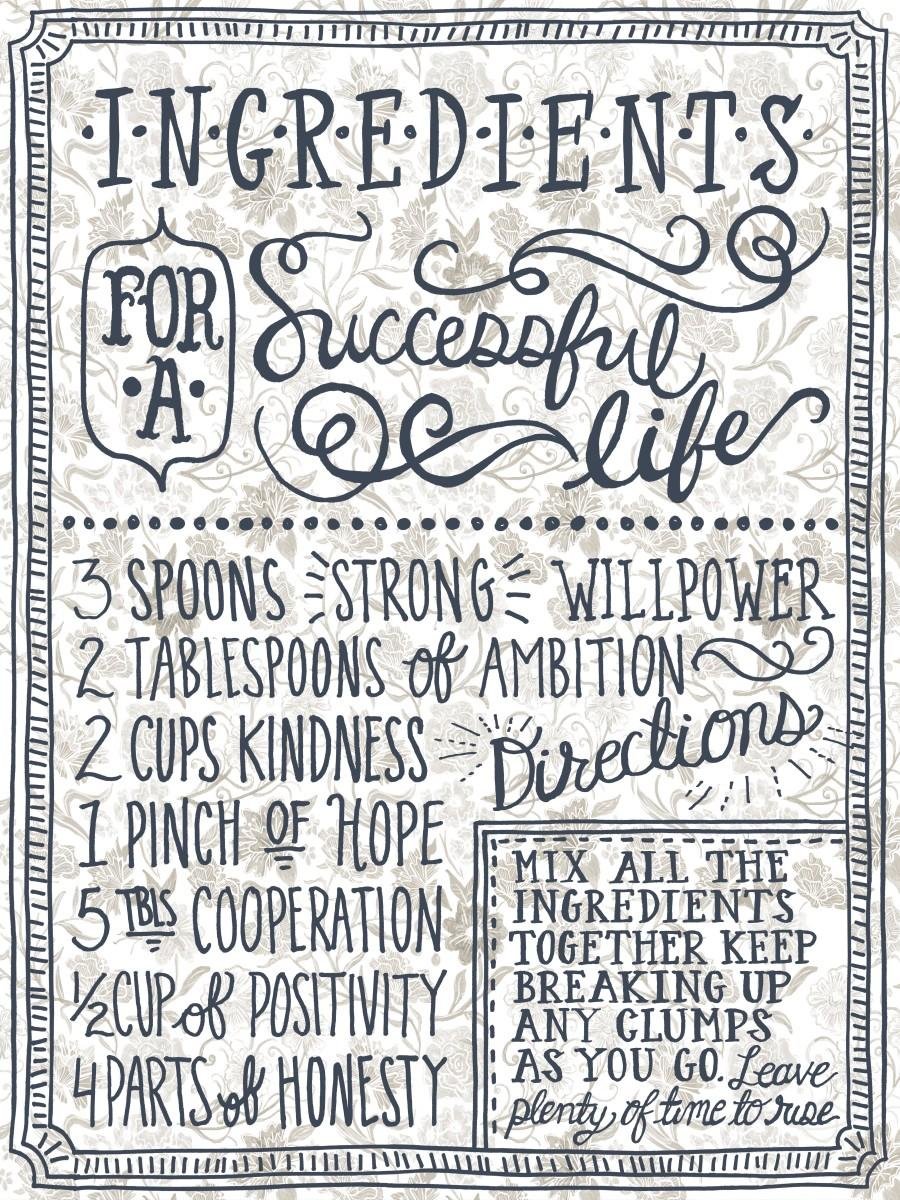 ·I·N·G·R·E·D·I·E·N·T·S·
FOR
·A·
Successful
life
3 SPOONS STRONG WILLPOWER
2 TABLESPOONS of AMBITION
2 CUPS KINDNESS
1 PINCH OF HOPE
5 TBLS COOPERATION
½ CUP of POSITIVITY
4 PARTS of HONESTY
Directions
MIX ALL THE
INGREDIENTS
TOGETHER KEEP
BREAKING UP
ANY CLUMPS
AS YOU GO. Leave
plenty of time to rise